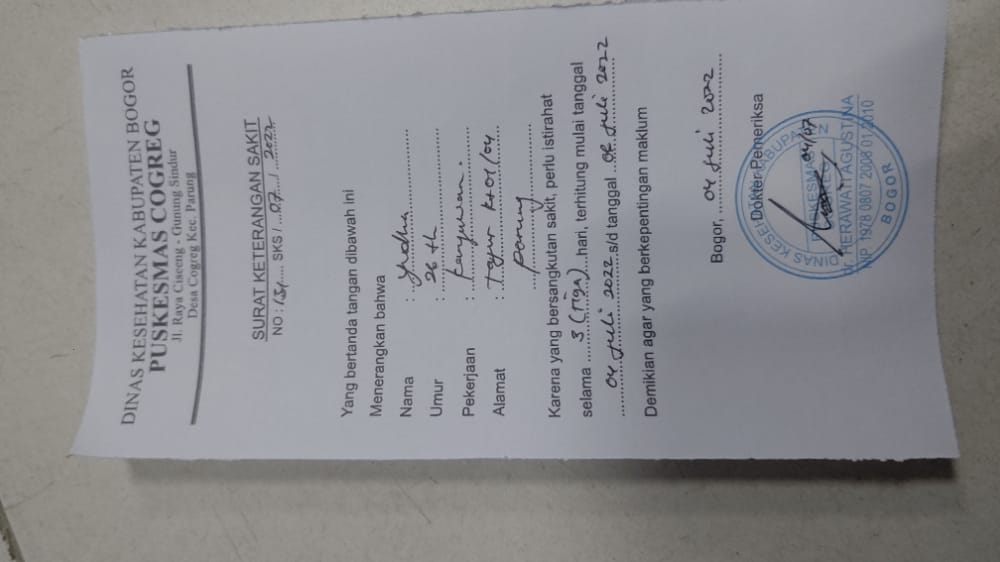 DINAS KESEHATAN KABUPATEN BOGOR
PUSKESMAS COGREG
Jl. Raya Ciseeng - Gunung Sindur
Desa Cogreg Kec. Parung
SURAT KETERANGAN SAKIT
NO : 154 SKS / 07 / 2022
Yang bertanda tangan dibawah ini
Menerangkan bahwa
Nama : Yudha
Umur : 26 th
Pekerjaan : Karyawan.
Alamat : 01/04
Parung
Karena yang bersangkutan sakit, perlu istirahat
selama 3 (Tiga) hari, terhitung mulai tanggal
04 Juli 2022 s/d tanggal 06 Juli 2022
Demikian agar yang berkepentingan maklum
Bogor, 04 Juli 2022
Dokter Pemeriksa
04/07
HERAWATI AGUSTINA
NIP 1978 0807 2008 01 2010
DINAS KESEHATAN KABUPATEN
PUSKESMAS
BOGOR